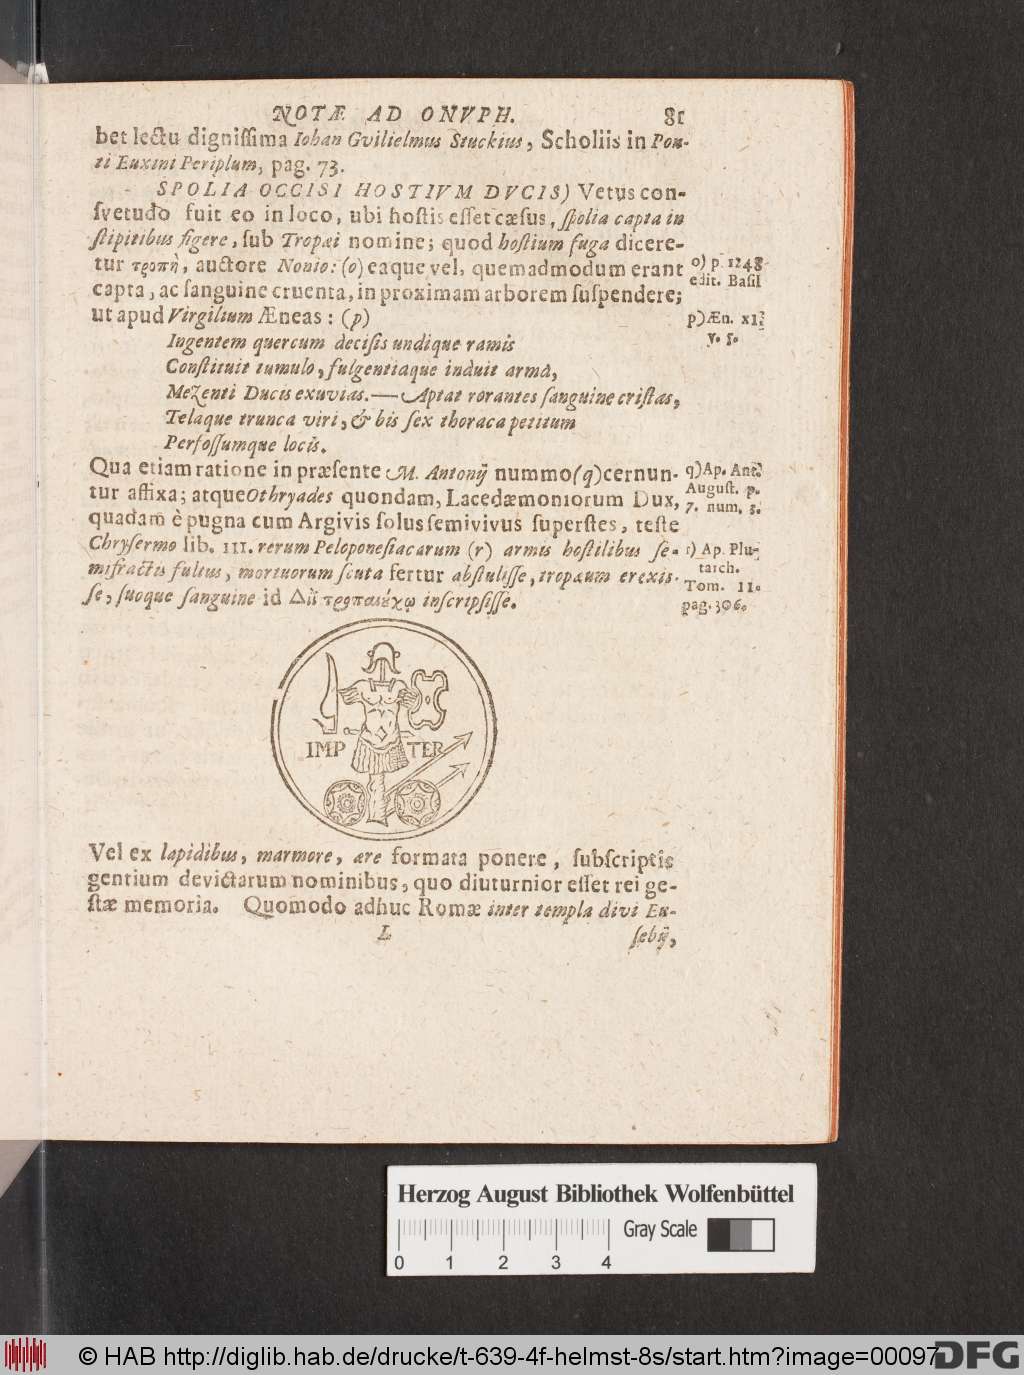 NOTÆ AD ONVPH. 81
bet lectu dignissima Iohan Gvilielmus Stuckius, Scholiis in Pon-
ti Euxini Periplum, pag. 73.
SPOLIA OCCISI HOSTIVM DVCIS) Vetus con-
svetudo fuit eo in loco, ubi hostis esset cæsus, spolia capta in
stipitibus figere, sub Tropæi nomine; quod hostium fuga dicere-
tur τροπὴ, auctore Nonio: (o) eaque vel, quemadmodum erant
capta, ac sanguine cruenta, in proximam arborem suspendere;
ut apud Virgilium Æneas: (p)
Ingentem quercum decisis undique ramis
Constituit tumulo, fulgentiaque induit arma,
Mezenti Ducis exuvias.— Aptat rorantes sanguine cristas,
Telaque trunca viri, & bis sex thoraca petitum
Perfossumque locis.
Qua etiam ratione in præsente M. Antonij nummo (q) cernun-
tur affixa; atque Othryades quondam, Lacedæmoniorum Dux,
quadam è pugna cum Argivis solus semivivus superstes, teste
Chrysermo lib. III. rerum Peloponesiacarum (r) armis hostilibus se-
mifractis fultus, mortuorum scuta fertur abstulisse, tropæum erexis-
se, suoque sanguine id Διῒ τροπαιούχῳ inscripsisse.
o) p. 1248
edit. Basil
p) Æn. XI.
v. 5.
q) Ap. Ant.
August. p.
7. num. 3.
r) Ap. Plu-
tarch.
Tom. II.
pag. 306.
IMP TER
Vel ex lapidibus, marmore, ære formata ponere, subscriptis
gentium devictarum nominibus, quo diuturnior esset rei ge-
stæ memoria. Quomodo adhuc Romæ inter templa divi Eu-
L sebij,
Herzog August Bibliothek Wolfenbüttel
Gray Scale
0 1 2 3 4
© HAB http://diglib.hab.de/drucke/t-639-4f-helmst-8s/start.htm?image=00097
DFG